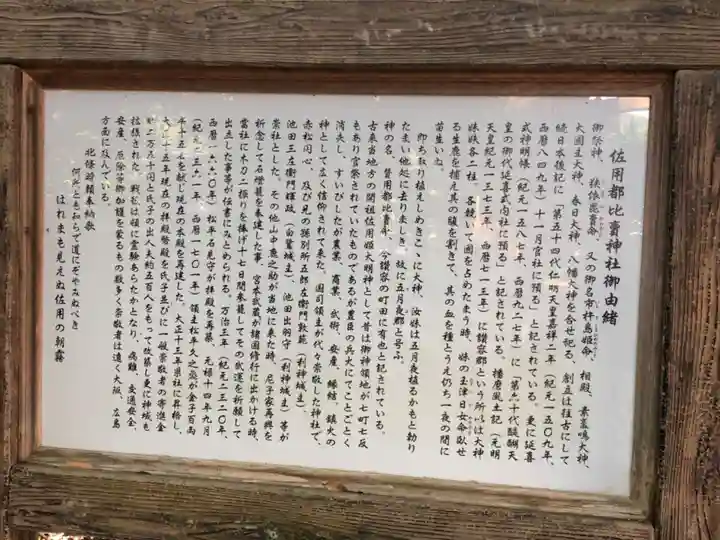 佐用都比賣神社御由緒
御祭神　狭依毘賣命　又の御名市杵島姫命　相殿、素盞鳴大神、
大國主大神、春日大神、八幡大神を合せ祀る。創立は往古にして
続日本後記に「第五十四代仁明天皇嘉祥二年（紀元一五〇九年、
西暦八四九年）十一月官社に預る」と記されている。更に延喜
式神明帳（紀元一五八七年、西暦九二七年）に「第六十代醍醐天
皇の御代延喜式内社に預る」と記されている。播磨風土記（元明
天皇紀元一三七三年、西暦七一三年）に讃容郡という所以は大神
妹妋各二柱、各競いて國を占めたまう時、妹の玉津日女命臥せ
る生鹿を捕え其の腹を割きて、其の血を種とうえ仍ち一夜の間に
苗生いぬ。
即ち取り植えしめきこゝに大神、汝妹は五月夜植るかもと勅り
たまい他処に去りましき、故に五月夜郡と号ふ。
神の名、賛用都比賣命、今讃容の町田に有也と記されている。
古来当地方の開祖佐用姫大明神として昔は御神領地が七町七反
もあり官祭されていたものであるが豊臣の兵火にてことごとく
消失し、すいびしたが農業、商業、武術、安産、縁結、鎮火の
神として広く信仰されて来た。国司領主が代々崇敬した神社で、
赤松円心、及び兄の孫別所五郎左衛門敦範（利神城主）
池田三左衛門輝政（白鷺城主）池田出羽守（利神城主）等が
崇社とした。その他山中鹿之助が当地に来た時、尼子家再興を
祈念して石燈籠を奉建した事、宮本武蔵が諸国修行に出かける時、
当社に木刀二振りを捧げ十七日間参籠してその武運を祈願して
出立した事等が伝書にみとめられる。万治三年（紀元二三二〇年、
西暦一六六〇年）松平石見守が拝殿を再築、元禄十四年九月
（紀元二三六一年、西暦一七〇一年）領主松平久之丞が金子百両
年十五石を献じ現在の本殿を再建した。大正十三年県社に昇格し、
大正十五年現在の拝殿幣殿を氏子並びに一般崇敬者の寄進金
町二万五千円と氏子の出人夫約五百人をもって改築し更に神域も
拡張された。戦后は頓に霊験あらたかとなり、病難、交通安全、
安産、厄除等御加護を蒙るもの数多く崇敬者は遠く大阪、広島
方面に及んでいる。
北條時頼奉納歌
何処とも知らで道にぞやみぬべき
はれまも見えぬ佐用の朝霧